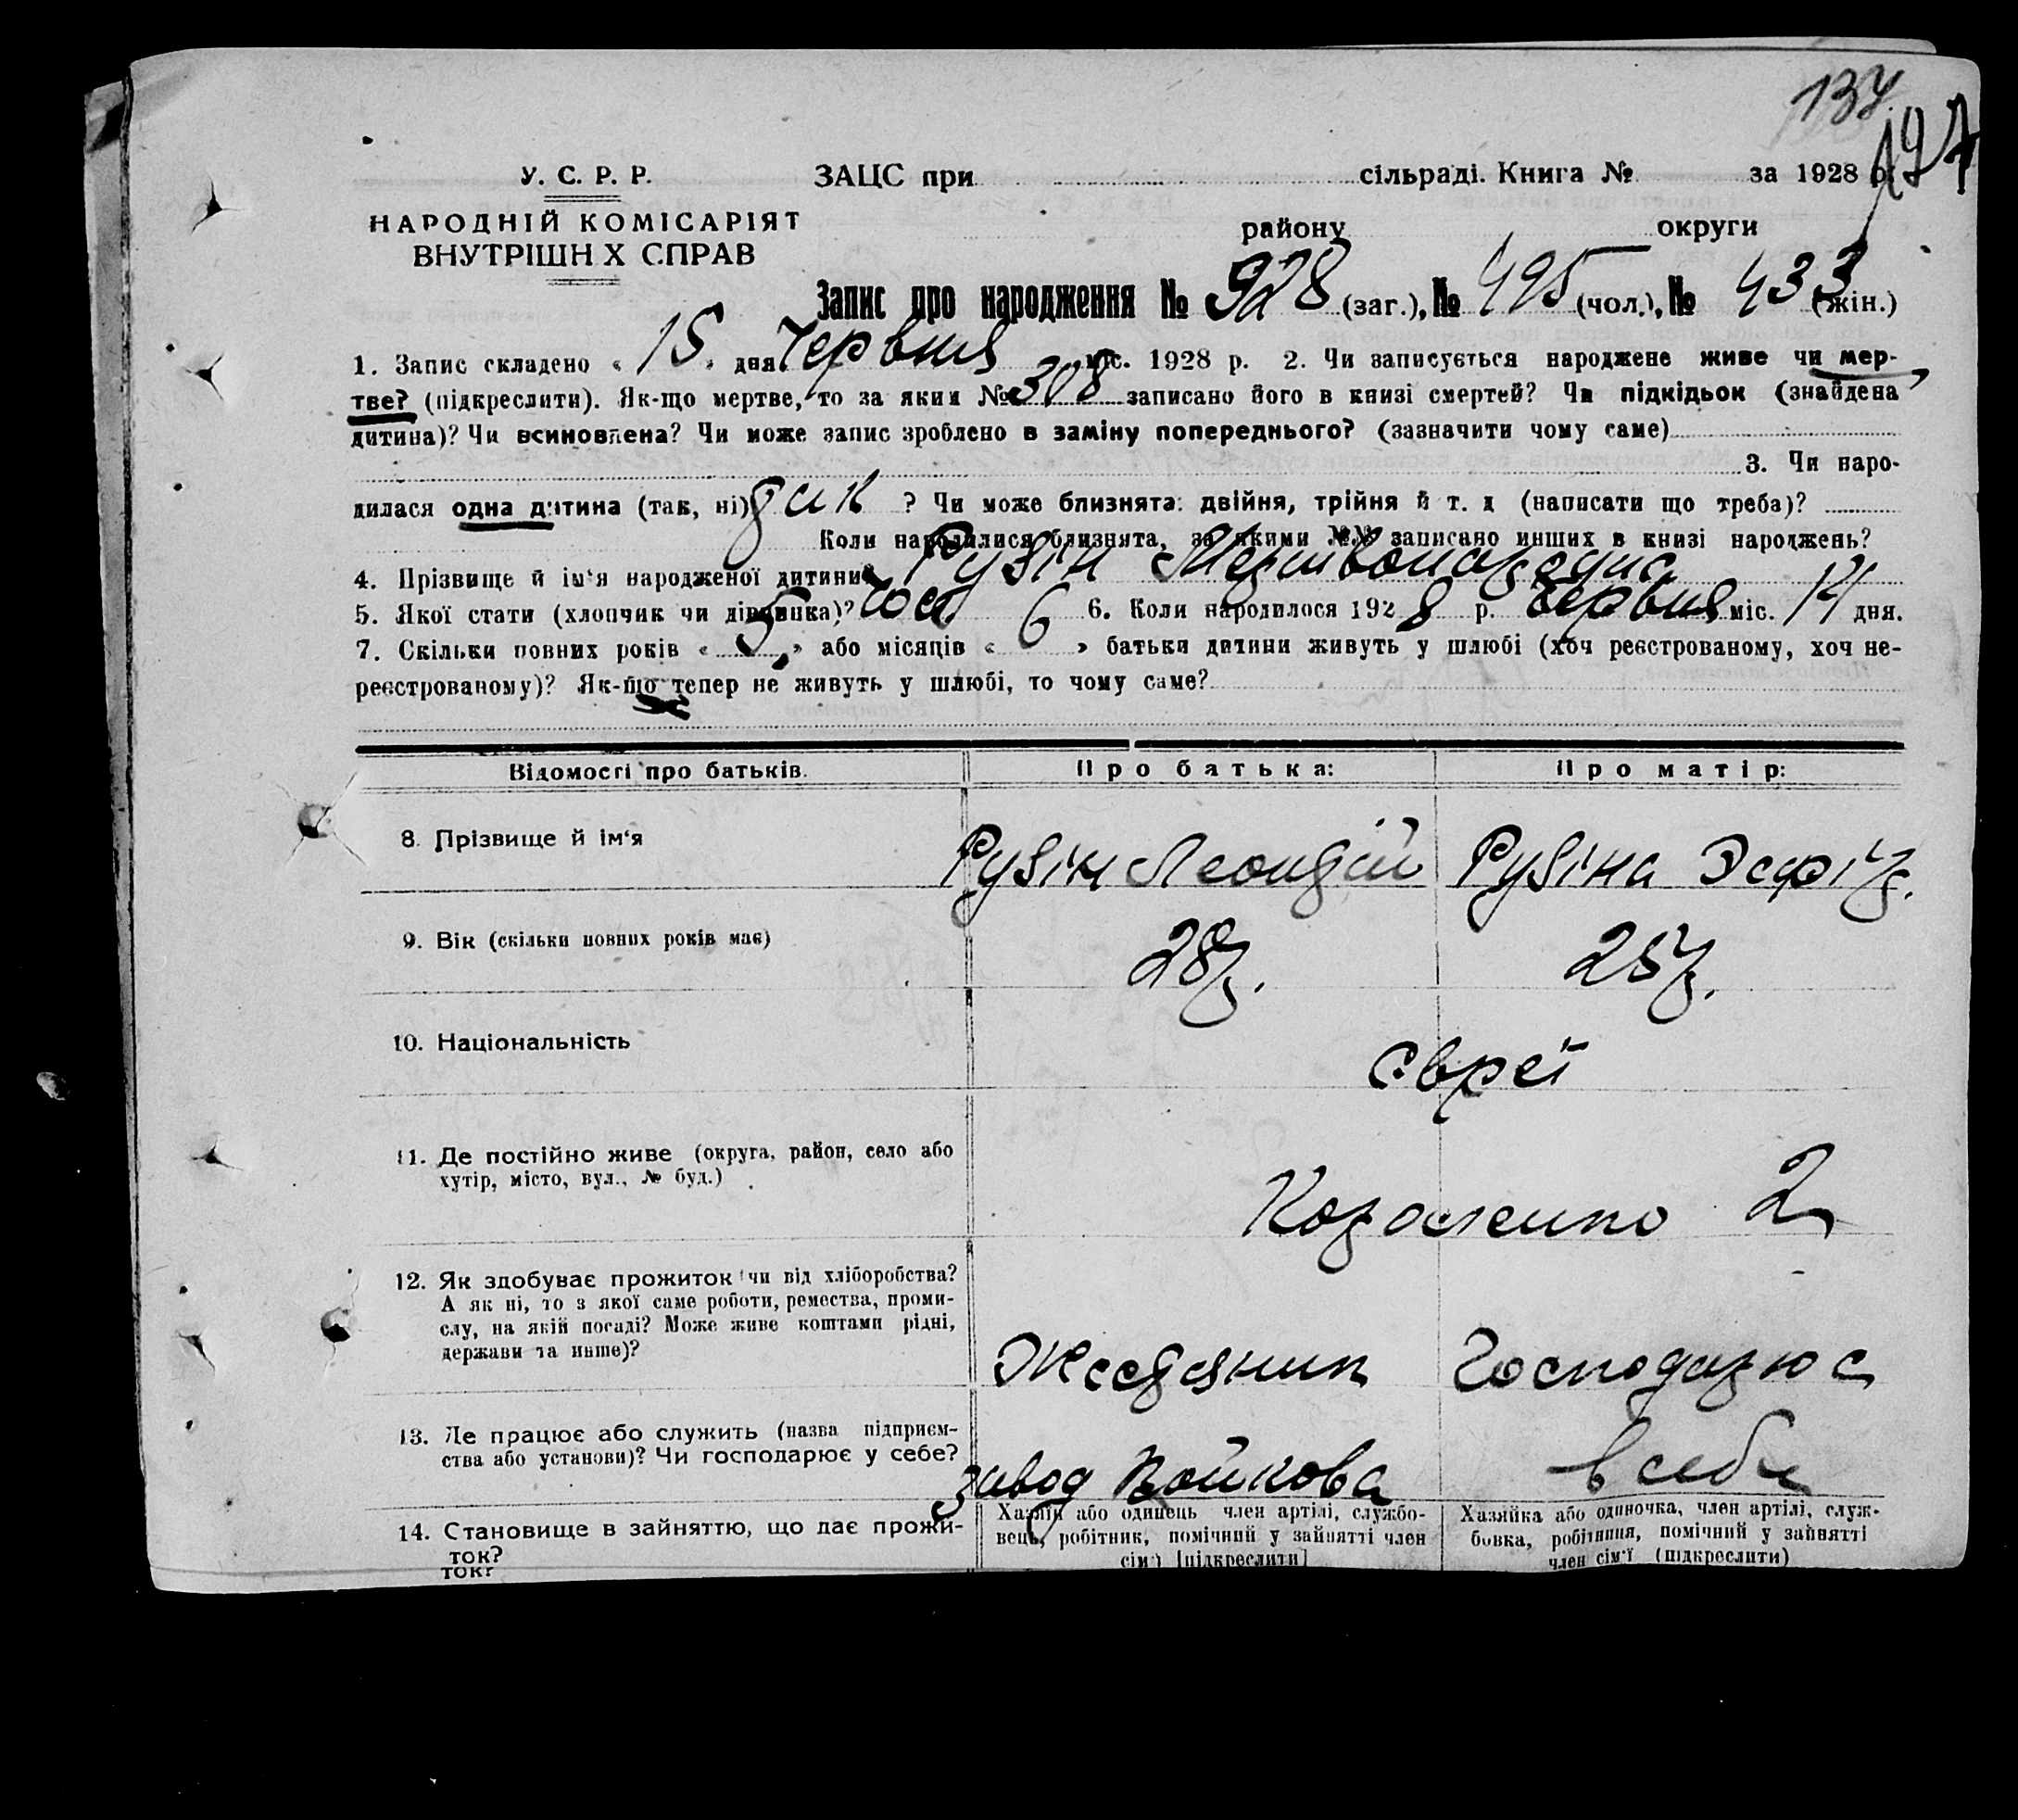 137
197
У. С. Р. Р.
НАРОДНІЙ КОМІСАРІЯТ
ВНУТРІШН Х СПРАВ
ЗАЦС при сільраді. Книга № за 1928 р.
району округи
Запис про народження № 928 (заг.), № 495 (чол.), № 433 (жін.)
1. Запис складено « 15 » дня Червня міс. 1928 р. 2. Чи записується народжене живе чи мер-
тве? (підкреслити). Як-що мертве, то за яким № 308 записано його в книзі смертей? Чи підкідьок (знайдена
дитина)? Чи всиновлена? Чи може запис зроблено в заміну попереднього? (зазначити чому саме)
3. Чи наро-
дилася одна дитина (так, ні) ? Чи може близнята: двійня, трійня й т. д (написати що треба)?
Коли народилися близнята, за якими №№ записано инших в книзі народжень?
4. Прізвище й ім'я народженої дитини Рузін
5. Якої стати (хлопчик чи дівчинка)? 6. Коли народилося 1928 р. Червня міс. 14 дня.
7. Скільки повних років « 5 » або місяців « 6 » батьки дитини живуть у шлюбі (хоч реєстрованому, хоч не-
реєстрованому)? Як-що тепер не живуть у шлюбі, то чому саме?
Відомості про батьків. Про батька: Про матір:
8. Прізвище й ім'я Рузін Рузіна Эсфір
9. Вік (скільки повних років має) 28 р. 25 р.
10. Національність Євреї
11. Де постійно живе (округа, район, село або
хутір, місто, вул., № буд.)
2
12. Як здобуває прожиток чи від хліборобства?
А як ні, то з якої саме роботи, ремества, проми-
слу, на якій посаді? Може живе коштами рідні,
держави та инше)?
Жестяник Господарює
13. Де працює або служить (назва підприєм-
ства або установи)? Чи господарює у себе?
завод Войкова в себе
14. Становище в зайняттю, що дає прожи-
ток?
ток?
Хазяїн або одинець член артілі, службо-
вець, робітник, помічний у зайнятті член
сім'ї [підкреслити]
Хазяйка або одиночка, член артілі, служ-
бовка, робітниця, помічний у зайнятті
член сім'ї (підкреслити)